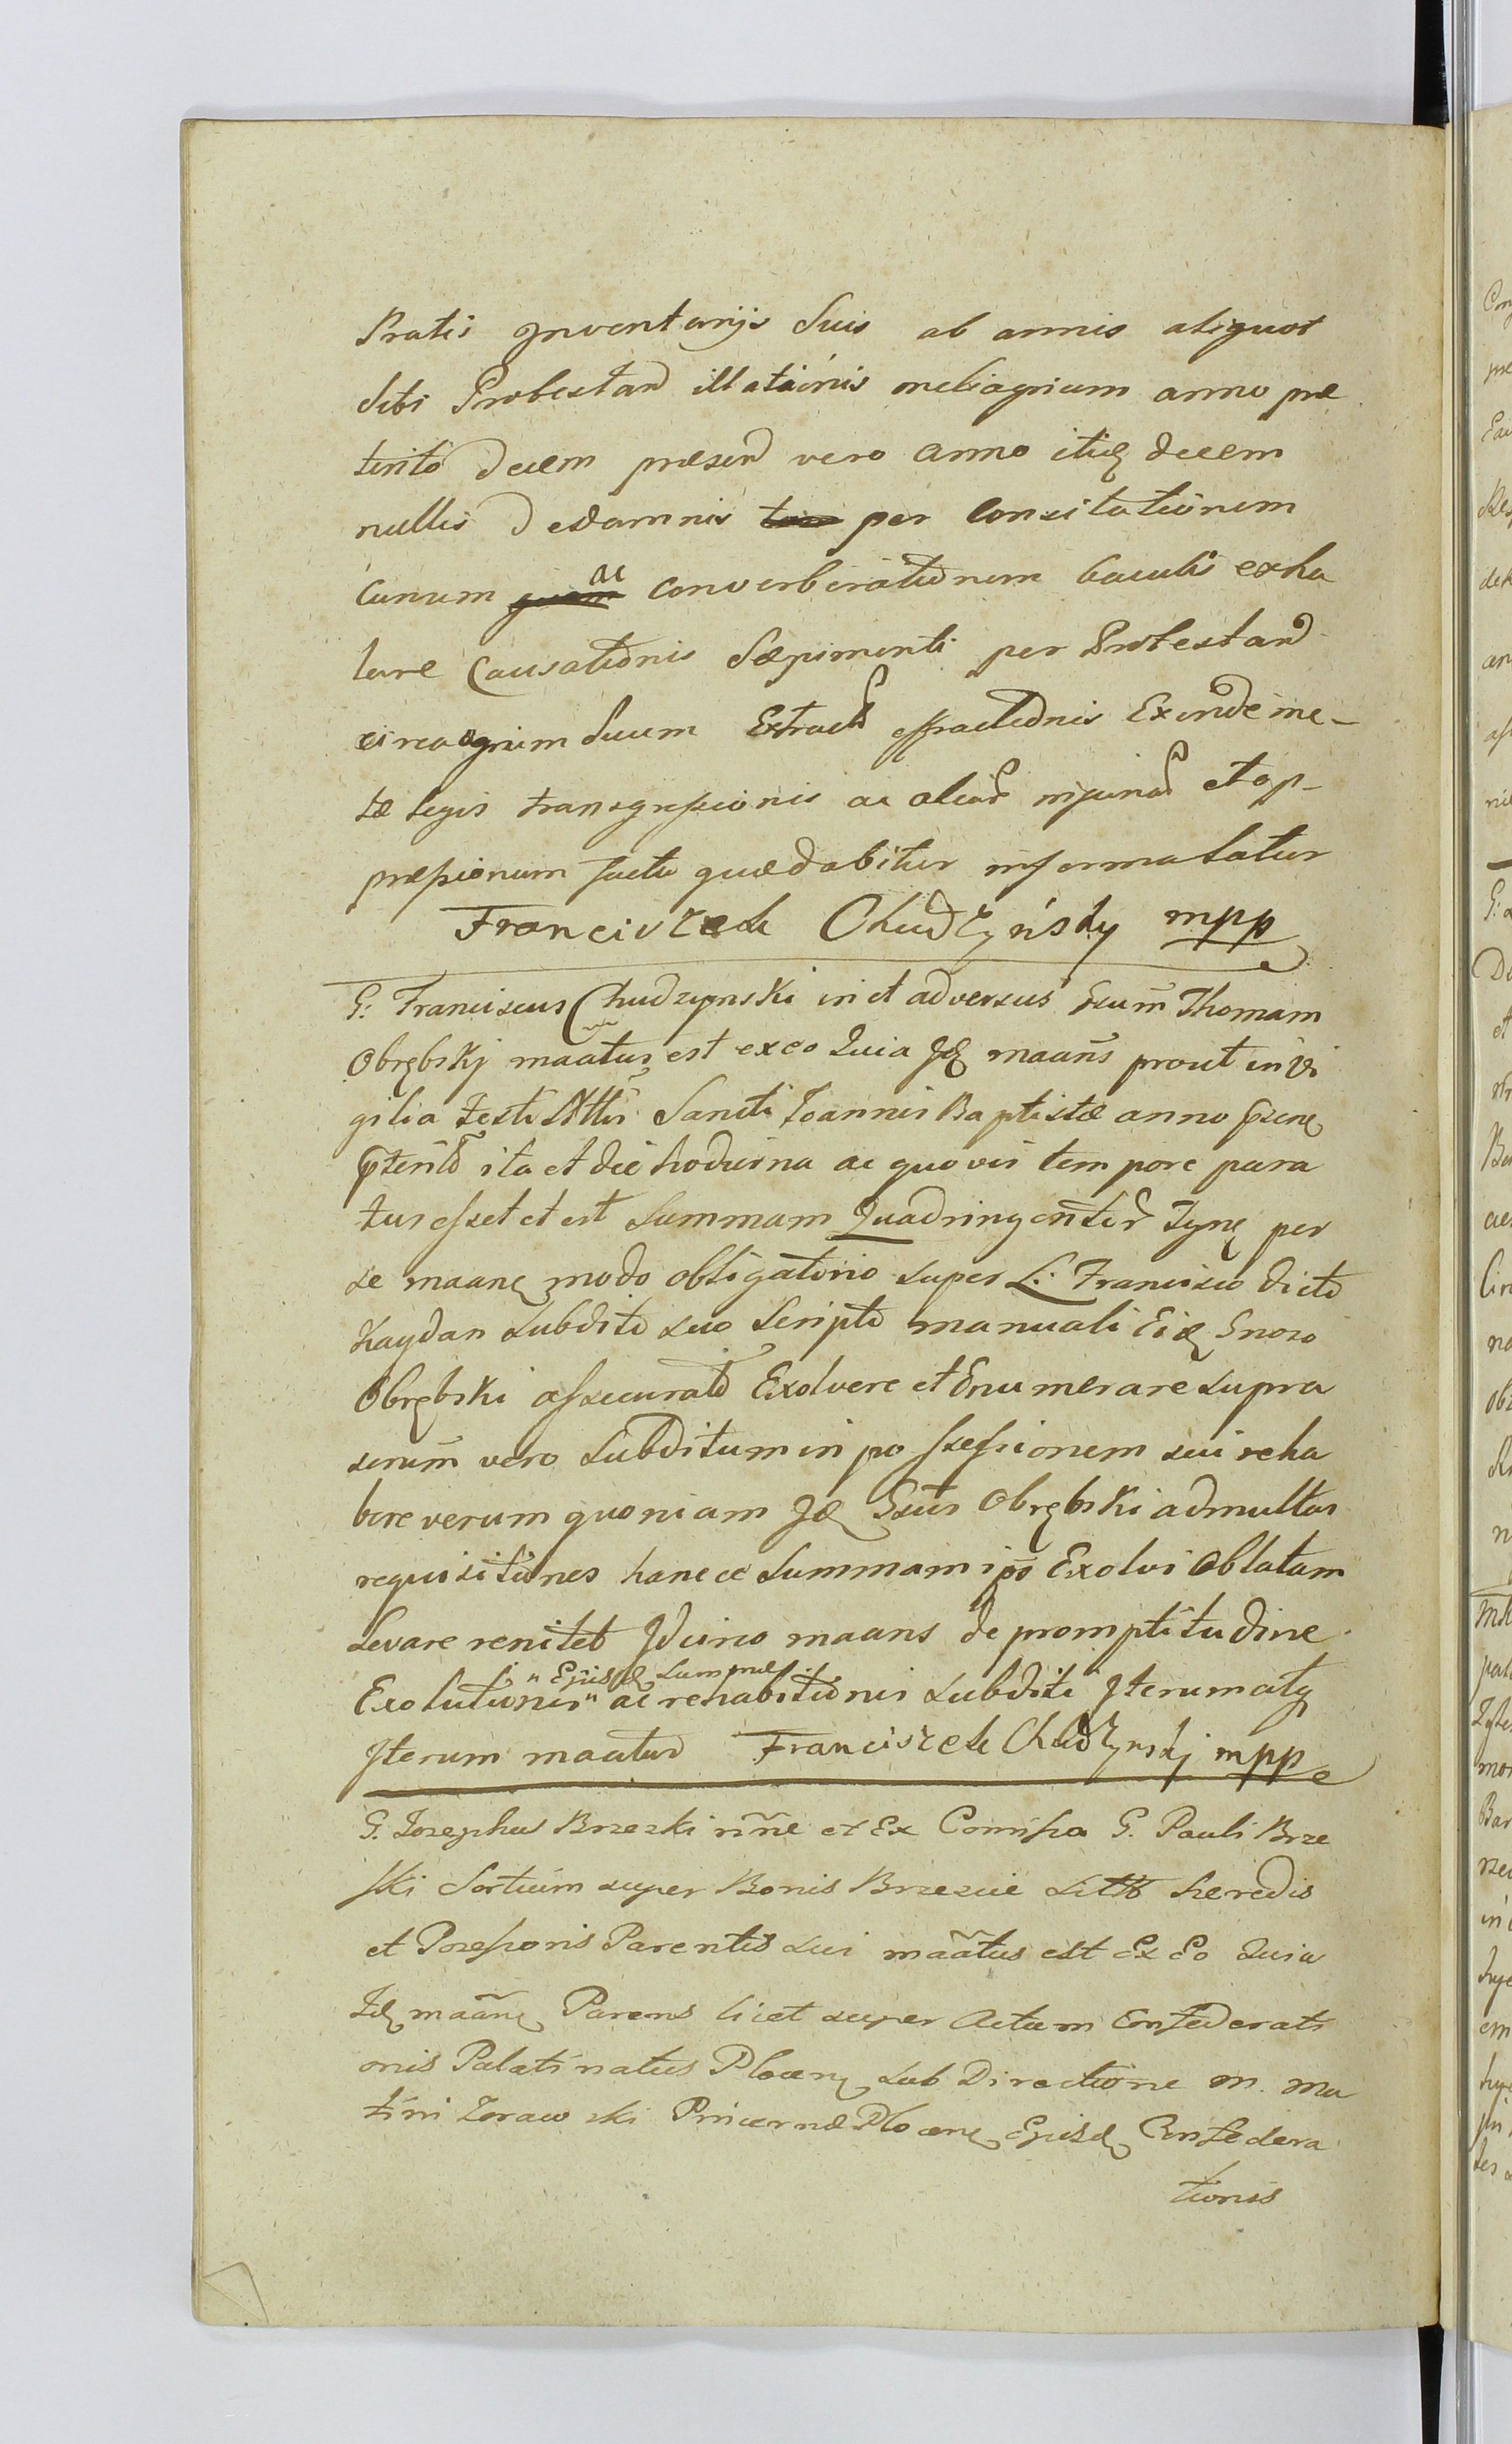 Pratis Inventarijs Suis ab annis aliquot
Sibi Protestand illationis meliagrium anno præ
terito decem præsend vero anno itidę decem
nullis d edamnis per Concitationem
Canum ac converberationem baculis exha
lare Causationis Sæpimenti per Protestand
circa agrum Suum Extracti effractionis Exinde me-
tæ legis transgressionis ac aliar injuriar et op-
præssionum factu quæ dabitur informatatur
Franciszek Chudzynsky mpp
G: Franciscus Chudzynski in et adversus Gsum Thomam
Obrębskj maatus est ex eo Quia Jdę maans prout in Vi
gilia Festi Sancti Joannis Baptistæ anno
pterito ita et die hodierna ac quovis tempore para
tus esset et est Summam Quadringenter Tynę per
se maanę modo obligatorio super L: Francisco dicto
Kaydan Subdito suo Scripto manuali Eidę Gnoso
Obrębski assecurato Exolvere et Enumerare supra
serum vero Subditum in possessionem sui reha
bere verum quoniam Jdę Gsus Obrębski ad multas
requisitiones hancce Summam ipsi Exolvi Oblatam
Levare renitet Jdcirco maans de promptitudine
Exolutionis " Ejusdę Summæ " ac rehabitionis Subditi Jterum atq
Jterum maatur Franciszek Chudzynskj mpp
G. Josephus Brzeski nñe et Ex Comissa G. Pauli Brze
ski Sortium super Bonis Brzezie Litt heredis
et Possessoris Parentis Sui maatus est Ex Eo Quia
Idę maanę Parens licet super Actum Confederati
onis Palatinatus Plocenę Sub Directione M. Ma
tini Zorawski Pincernæ Plocenę Ejusdę Confedera
tionis